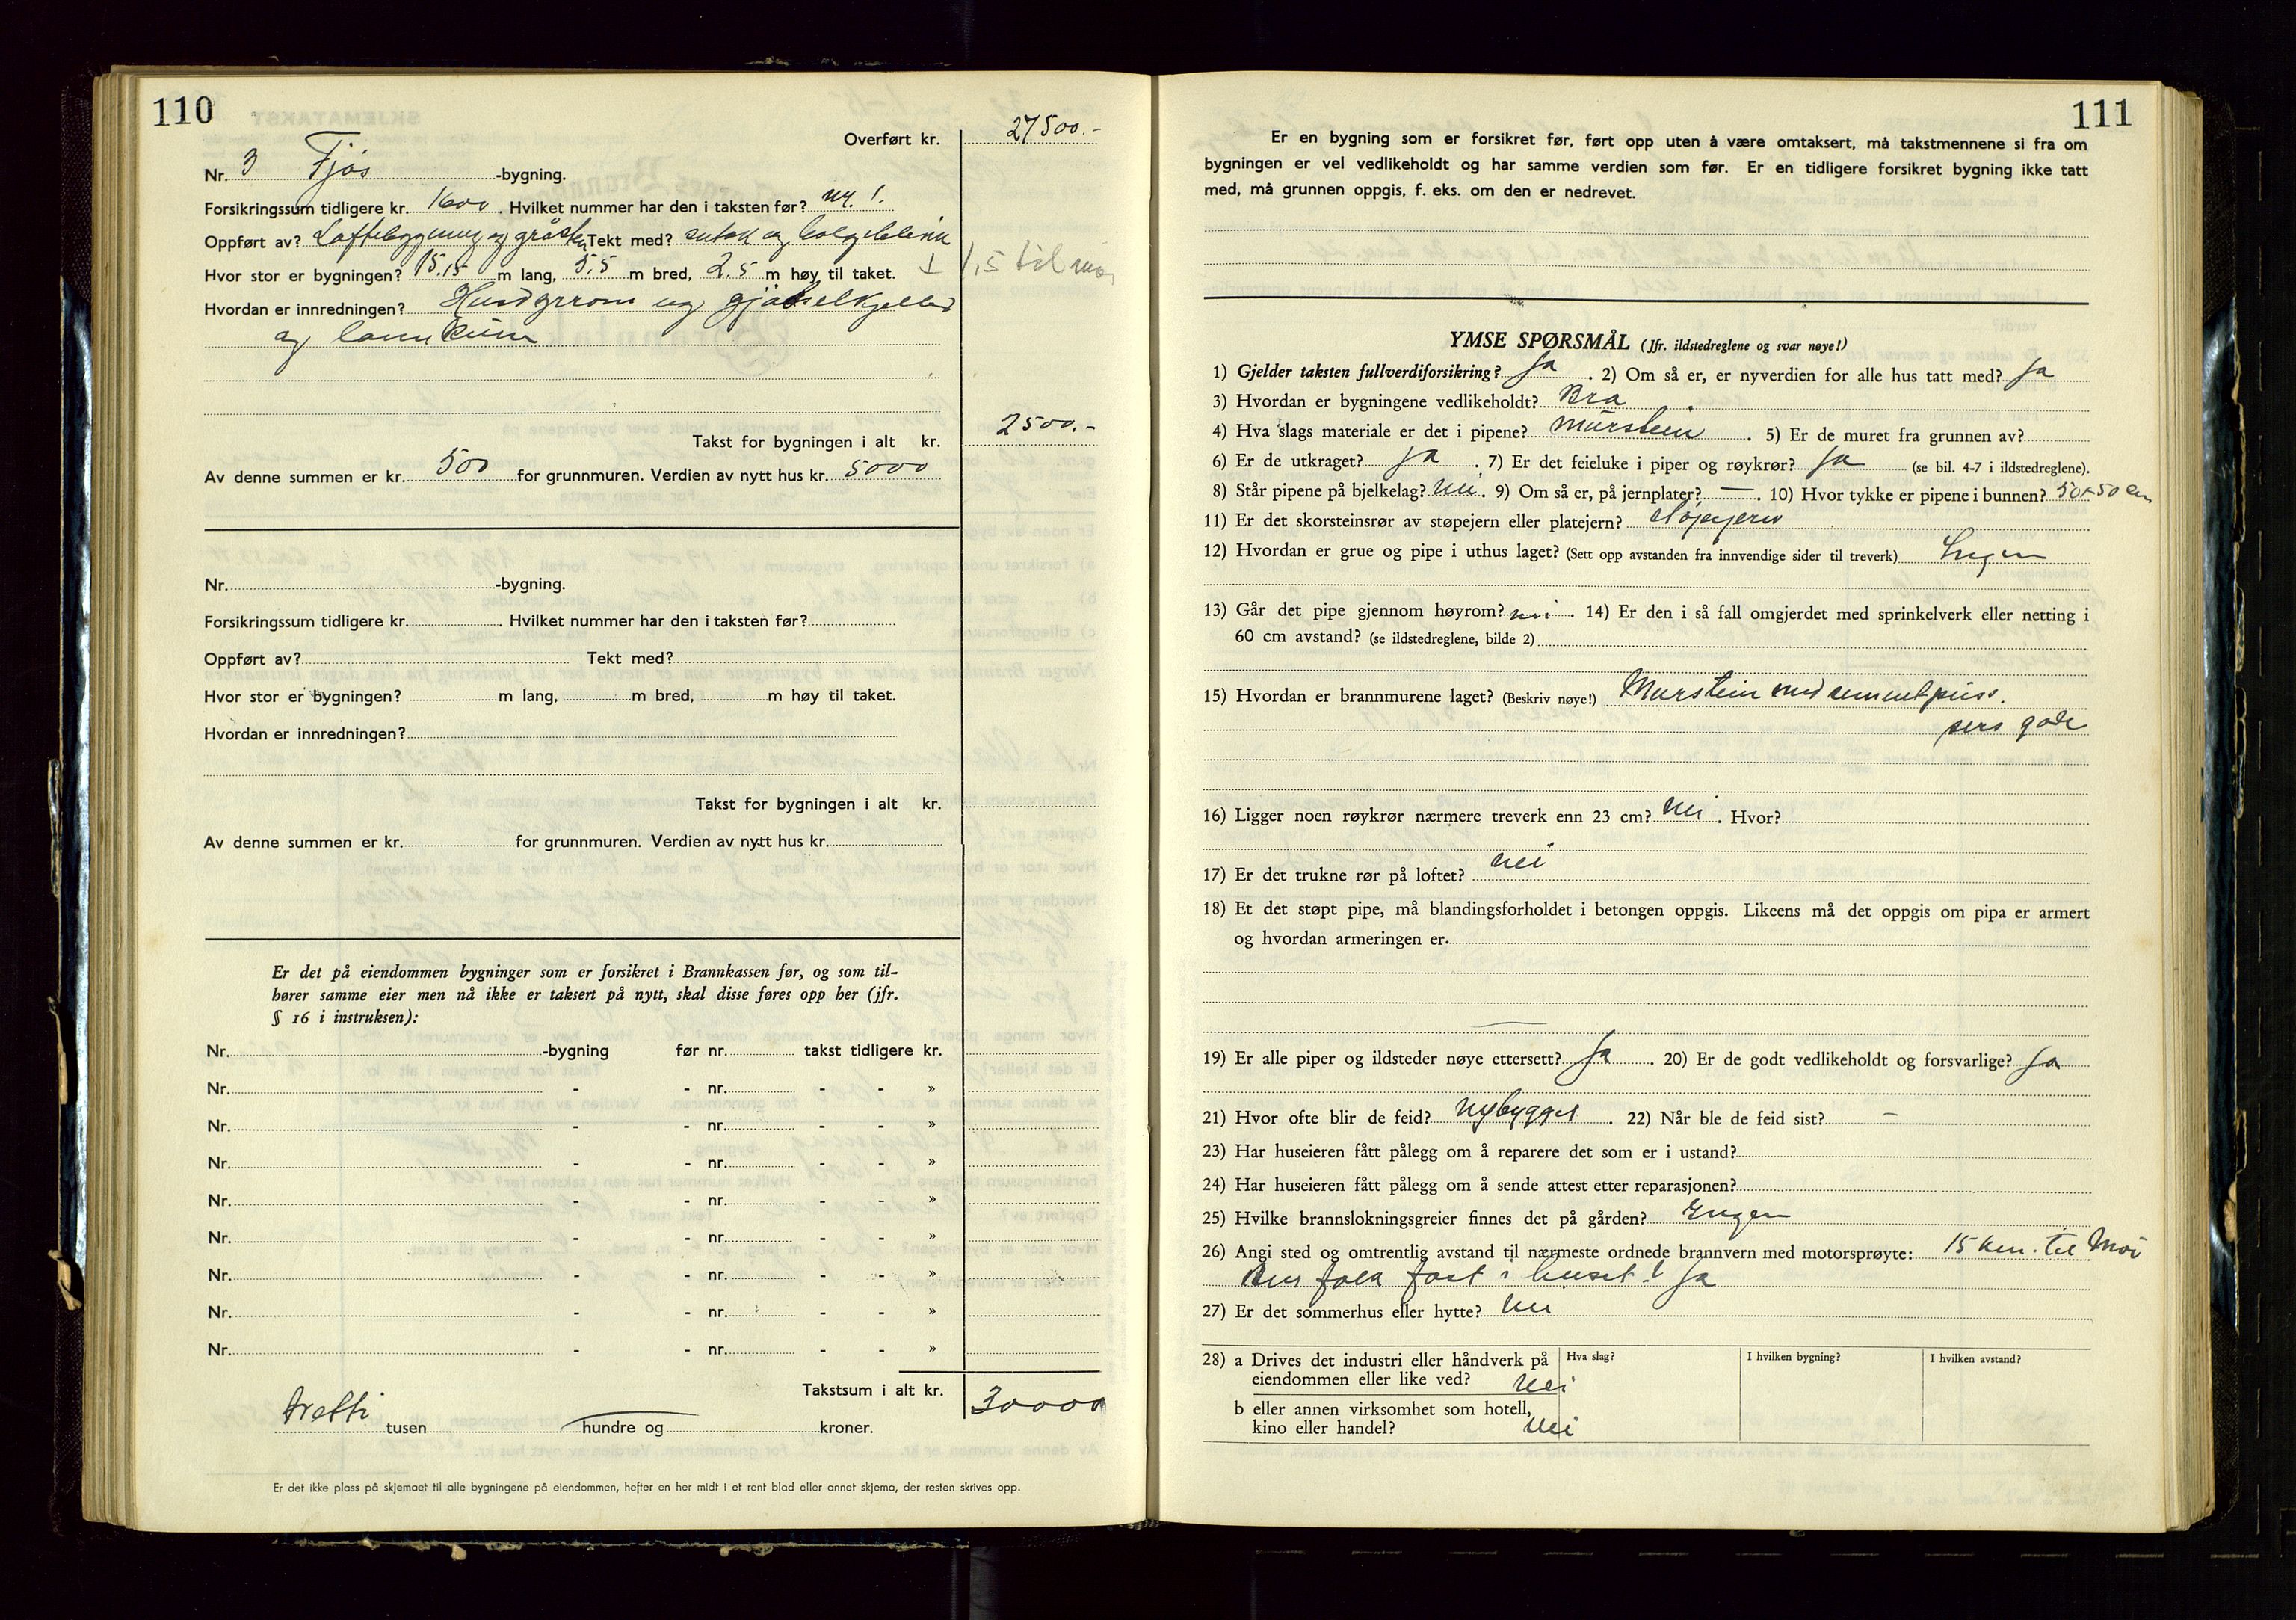 110
Overført kr. 27500.-
Nr. 3 Fjøs -bygning.
Forsikringssum tidligere kr. 1600 . Hvilket nummer har den i taksten før? nr. 1.
Oppført av? Loftebygning og gråsten Tekt med? sutak og bølgeblikk
Hvor stor er bygningen? 15.15 m lang, 5,5 m bred, 2.5 m høy til taket. 1,5 til
Hvordan er innredningen? Husdyrrom og gjødselkjeller
og
Takst for bygningen i alt kr. 2500.-
Av denne summen er kr. 500 for grunnmuren. Verdien av nytt hus kr. 5000
Nr. -bygning.
Forsikringssum tidligere kr. . Hvilket nummer har den i taksten før?
Oppført av? Tekt med?
Hvor stor er bygningen? m lang, m bred, m høy til taket.
Hvordan er innredningen?
Takst for bygningen i alt kr.
Av denne summen er kr. for grunnmuren. Verdien av nytt hus kr.
Er det på eiendommen bygninger som er forsikret i Brannkassen før, og som til-
hører samme eier men nå ikke er taksert på nytt, skal disse føres opp her (jfr.
§ 16 i instruksen):
Nr. -bygning før nr. takst tidligere kr.
Nr. - - nr. - - »
Nr. - - nr. - - »
Nr. - - nr. - - »
Nr. - - nr. - - »
Nr. - - nr. - - »
Nr. - - nr. - - »
Nr. - - nr. - - »
Nr. - - nr. - - »
Takstsum i alt kr. 30000
tretti tusen hundre og kroner.
Er det ikke plass på skjemaet til alle bygningene på eiendommen, hefter en her midt i et rent blad eller annet skjema, der resten skrives opp.
111
Er en bygning som er forsikret før, ført opp uten å være omtaksert, må takstmennene si fra om
bygningen er vel vedlikeholdt og har samme verdien som før. Er en tidligere forsikret bygning ikke tatt
med, må grunnen oppgis, f. eks. om den er nedrevet.
YMSE SPØRSMÅL (Jfr. ildstedreglene og svar nøye!)
1) Gjelder taksten fullverdiforsikring? Ja . 2) Om så er, er nyverdien for alle hus tatt med? Ja
3) Hvordan er bygningene vedlikeholdt? Bra
4) Hva slags materiale er det i pipene? murstein . 5) Er de muret fra grunnen av?
6) Er de utkraget? Ja . 7) Er det feieluke i piper og røykrør? Ja (se bil. 4-7 i ildstedreglene).
8) Står pipene på bjelkelag? Nei. 9) Om så er, på jernplater? — . 10) Hvor tykke er pipene i bunnen? 50x50 cm
11) Er det skorsteinsrør av støpejern eller platejern? støpejern
12) Hvordan er grue og pipe i uthus laget? (Sett opp avstanden fra innvendige sider til treverk) Ingen
13) Går det pipe gjennom høyrom? nei . 14) Er den i så fall omgjerdet med sprinkelverk eller netting i
60 cm avstand? (se ildstedreglene, bilde 2)
15) Hvordan er brannmurene laget? (Beskriv nøye!) Murstein med sementpuss.
sers gode
16) Ligger noen røykrør nærmere treverk enn 23 cm? Nei . Hvor?
17) Er det trukne rør på loftet? nei
18) Et det støpt pipe, må blandingsforholdet i betongen oppgis. Likeens må det oppgis om pipa er armert
og hvordan armeringen er.
—
19) Er alle piper og ildsteder nøye ettersett? Ja . 20) Er de godt vedlikeholdt og forsvarlige? Ja
21) Hvor ofte blir de feid? nybygget . 22) Når ble de feid sist? —
23) Har huseieren fått pålegg om å reparere det som er i ustand?
24) Har huseieren fått pålegg om å sende attest etter reparasjonen?
25) Hvilke brannslokningsgreier finnes det på gården? Ingen
26) Angi sted og omtrentlig avstand til nærmeste ordnede brannvern med motorsprøyte: 15 km. til Moi
Bur folk fast i huset? Ja
27) Er det sommerhus eller hytte? Nei
28) a Drives det industri eller håndverk på
eiendommen eller like ved? Nei
Hva slag? I hvilken bygning? I hvilken avstand?
b eller annen virksomhet som hotell,
kino eller handel? Nei